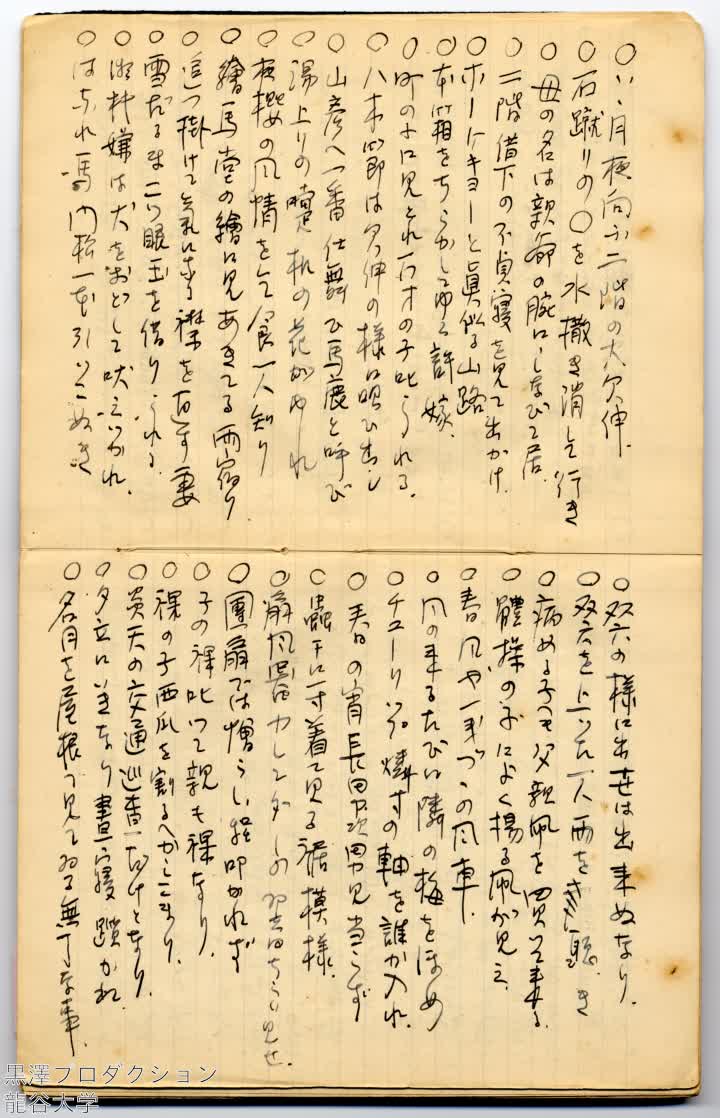 ○いゝ月夜向ふ二階の大欠伸、
○石蹴りの○を水撒き消して行き
○母の名は親爺の腕にしなびて居
○二階借下の不貞寝を見て出かけ
○ホーケキョーと真似る山路
○本箱をちらかしてゆく許嫁、
○町の子に見とれ石才の子叱られる、
○八木節は欠伸の様に唄ひ出し
○山彦へ一番仕舞ひ馬鹿と呼び
○湯上りの 机の花がゆれ
○夜桜の風情をして食一人知り
○繪馬堂の繪に見あきてる雨宿り
○追つ掛けて気になる襟を直す妻
○雪だるま二つ眼玉を借りられる、
○犬をおどして吠えつかれ、
○はなれ馬門松一本引つこぬき
○双六の様に出世は出来ぬなり、
○双六を上つた一人雨をきゝ
○病める子へも父親凧を買つて来る、
○體操の子によく揚る凧が見え、
○春風や一 づゝの風車、
○風の来るたびに隣の梅をほめ
○チューリップ燐寸の軸を誰か入れ、
○春の宵長田 次男見当らず
○蟲干に一寸着て見る裾模様、
○扇風器 ちらり見せ、
○團扇では憎らしい程叩かれず
○子の裸叱つて親も裸なり、
○裸の子西瓜を割るへかしこまり、
○炎天の交通巡査一だけとなり、
○夕立に 晝寝 かれ
○名月を屋根で見てゐる無 な事、
黒澤プロダクション
龍谷大学